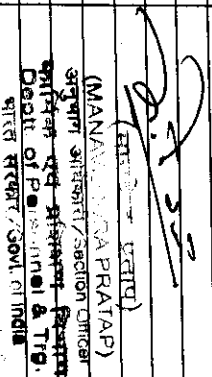 प्रताप)
(MANAV PRATAP)
अनुभाग अधिकारी/Section Officer
कार्मिक एवं प्रशिक्षण विभाग
Deptt of Personnel & Trg.
भारत सरकार/Govt. of India